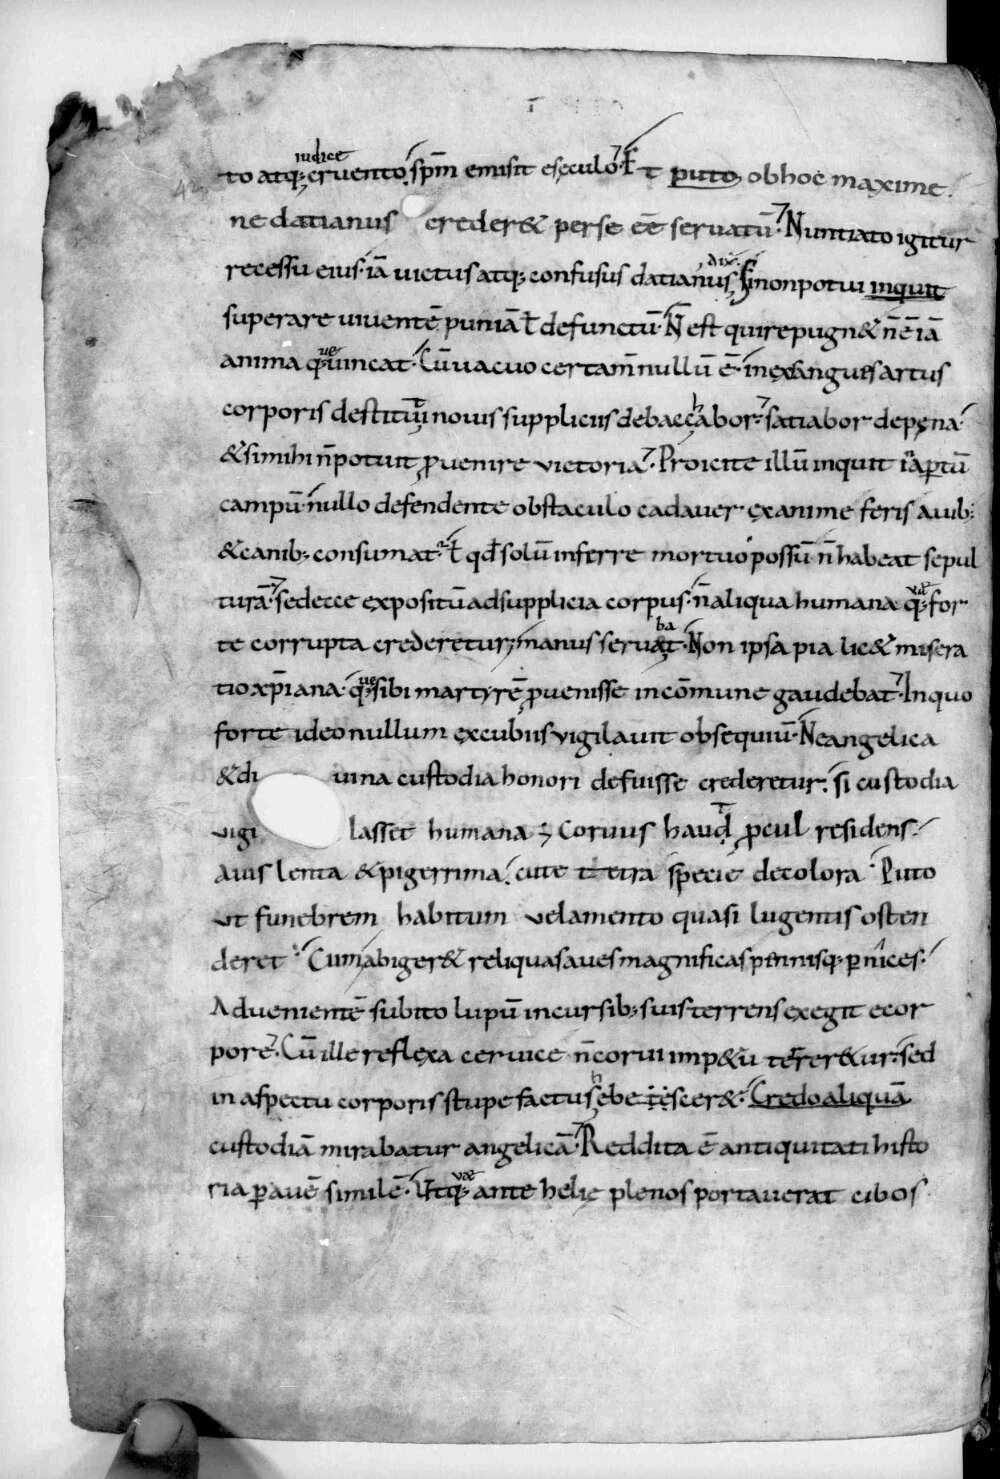 to atq; cruento iudice. sp̄m emisit esęculo. Et puto obhoc maxime.
ne datianus creder& perse eē seruatū. Nuntiato igitur
recessu eius. iā uictus atq; confusus datianus, dix̄. Si nonpotui inquit
superare uiuentē puniā ł defunctū. N̄ est quirepugn& n̄ ē iā
anima q;ue uincat. Cū uacuo certam̄ nullū ē. inexsangues artus
corporis destituti nouis suppliciis debacchabor. satiabor depęna
&simihi n̄potuit ꝓuenire uictoria. Proicite illū inquit in apertū
campū. nullo defendente obstaculo cadauer exanime feris auib;
&canib; consumat. ł qđ solū inferre mortuo possū n̄ habeat sepul
turā. sedecce expositū adsupplicia corpus. n̄ aliqua humana q;uæ for
te corrupta crederetur, manus seruabat. Non ipsa pia lic& misera
tio xp̄iana. q;ue sibi martyrē ꝓuenisse incōmune gaudebat. Inquo
forte ideo nullum excubiis uigilauit obsequiū. Ne angelica
&di uina custodia honori defuisse crederetur. si custodia
uigi lasset humana; Coruus haud ꝓcul residens.
Auis lenta &pigerrima. cute tetra specie decolora. Puto
ut funebrem habitum uelamento quasi lugentis osten
deret. Cum abiger& reliquas aues magnificas pennisq; pernices.
Aduenientē subito lupū incursib; suis terrens exegit ecor
pore. Cū ille reflexa ceruice n̄ corui imp&u terrer&ur. sed
in aspectu corporis stupefactus hebescer&. Credo aliquā
custodiā mirabatur angelicā. Reddita ē antiquitati histo
ria ꝑ auē similē. Ut q;uæ ante helię plenos portauerat cibos